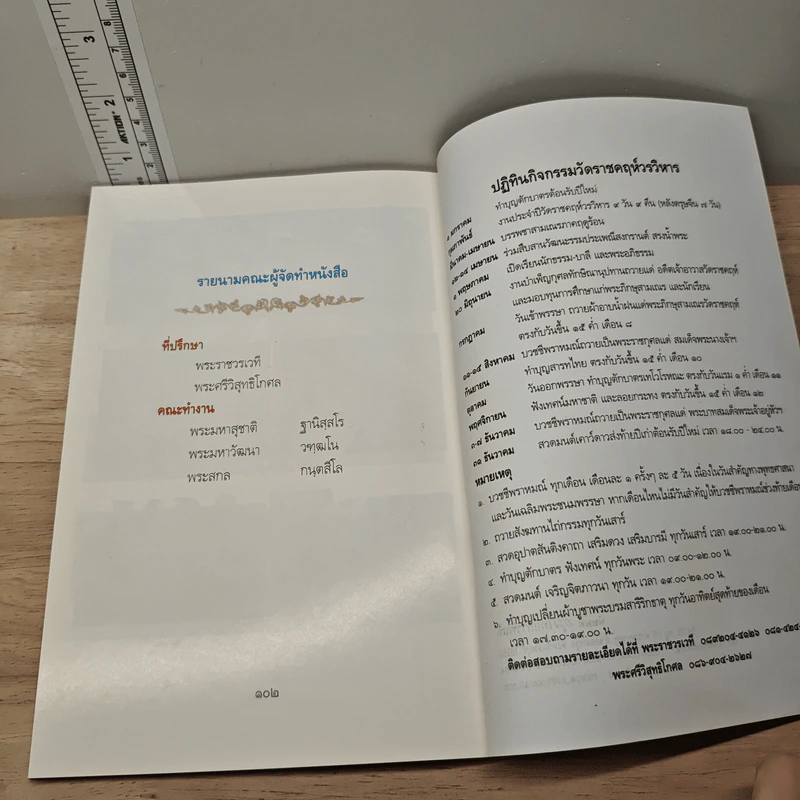 รายนามคณะผู้จัดทำหนังสือ
ที่ปรึกษา
พระราชวรเวที
พระศรีวิสุทธิโกศล
คณะทำงาน
พระมหาสุชาติ ฐานิสฺสโร
พระมหาวัฒนา วฑฺฒโน
พระสกล กนฺตสีโล
๑๐๒
ปฏิทินกิจกรรมวัดราชคฤห์วรวิหาร
๑ มกราคม ทำบุญตักบาตรต้อนรับปีใหม่
กุมภาพันธ์ งานประจำปีวัดราชคฤห์วรวิหาร ๙ วัน ๙ คืน (หลังตรุษจีน ๗ วัน)
มีนาคม-เมษายน บรรพชาสามเณรภาคฤดูร้อน
เมษายน ร่วมสืบสานวัฒนธรรมประเพณีสงกรานต์ สรงน้ำพระ
พฤษภาคม เปิดเรียนนักธรรม-บาลี และพระอภิธรรม
๒๐ มิถุนายน งานบำเพ็ญกุศลทักษิณานุปทานถวายแด่ อดีตเจ้าอาวาสวัดราชคฤห์
และมอบทุนการศึกษาแก่พระภิกษุสามเณร และนักเรียน
กรกฎาคม วันเข้าพรรษา ถวายผ้าอาบน้ำฝนแด่พระภิกษุสามเณรวัดราชคฤห์
ตรงกับวันขึ้น ๑๕ ค่ำ เดือน ๘
สิงหาคม บวชชีพราหมณ์ถวายเป็นพระราชกุศลแด่ สมเด็จพระนางเจ้าฯ
กันยายน ทำบุญสารทไทย ตรงกับวันขึ้น ๑๕ ค่ำ เดือน ๑๐
ตุลาคม วันออกพรรษา ทำบุญตักบาตรเทโวโรหณะ ตรงกับวันแรม ๑ ค่ำ เดือน ๑๑
พฤศจิกายน ฟังเทศน์มหาชาติ และลอยกระทง ตรงกับวันขึ้น ๑๕ ค่ำ เดือน ๑๒
๓-๗ ธันวาคม บวชชีพราหมณ์ถวายเป็นพระราชกุศลแด่ พระบาทสมเด็จพระเจ้าอยู่หัวฯ
๓๑ ธันวาคม สวดมนต์เคาว์ดาวส่งท้ายปีเก่าต้อนรับปีใหม่ เวลา ๑๘.๐๐ - ๒๔.๐๐ น.
หมายเหตุ
๑. บวชชีพราหมณ์ ทุกเดือน เดือนละ ๑ ครั้งๆ ละ ๕ วัน เนื่องในวันสำคัญทางพุทธศาสนา
และวันเฉลิมพระชนมพรรษา หากเดือนไหนไม่มีวันสำคัญให้บวชชีพราหมณ์ช่วงท้ายเดือน
๒. ถวายสังฆทานไถ่กรรมทุกวันเสาร์
๓. สวดอุปาตสันติงคาถา เสริมดวง เสริมบารมี ทุกวันเสาร์ เวลา ๑๙.๐๐-๒๑.๐๐ น.
๔. ทำบุญตักบาตร ฟังเทศน์ ทุกวันพระ เวลา ๐๙.๐๐-๑๒.๐๐ น.
๕. สวดมนต์ เจริญจิตภาวนา ทุกวัน เวลา ๑๙.๐๐-๒๑.๐๐ น.
๖. ทำบุญเปลี่ยนผ้าบูชาพระบรมสารีริกธาตุ ทุกวันอาทิตย์สุดท้ายของเดือน
เวลา ๑๗.๓๐-๑๙.๐๐ น.
ติดต่อสอบถามรายละเอียดได้ที่ พระราชวรเวที ๐๘๙๒๐๔-๔๑๒๖ ๐๘๑-๔๒๔-
พระศรีวิสุทธิโกศล ๐๘๖-๙๐๔-๒๖๒๗
1 2 3
6 7 8
AKTION